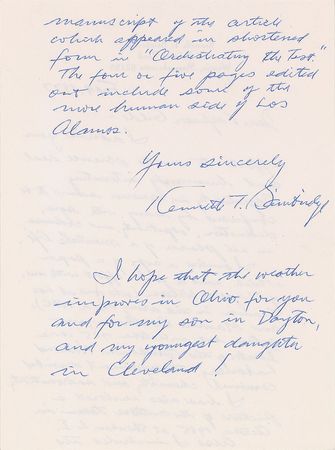 manuscript of the article
which appeared in shortened
form in "Orchestrating the Test."
The four or five pages edited
out include some of the
more human side of Los
Alamos.
Yours sincerely
Kenneth T. Bainbridge
I hope that the weather
improves in Ohio for you
and for my son in Dayton,
and my youngest daughter
in Cleveland!